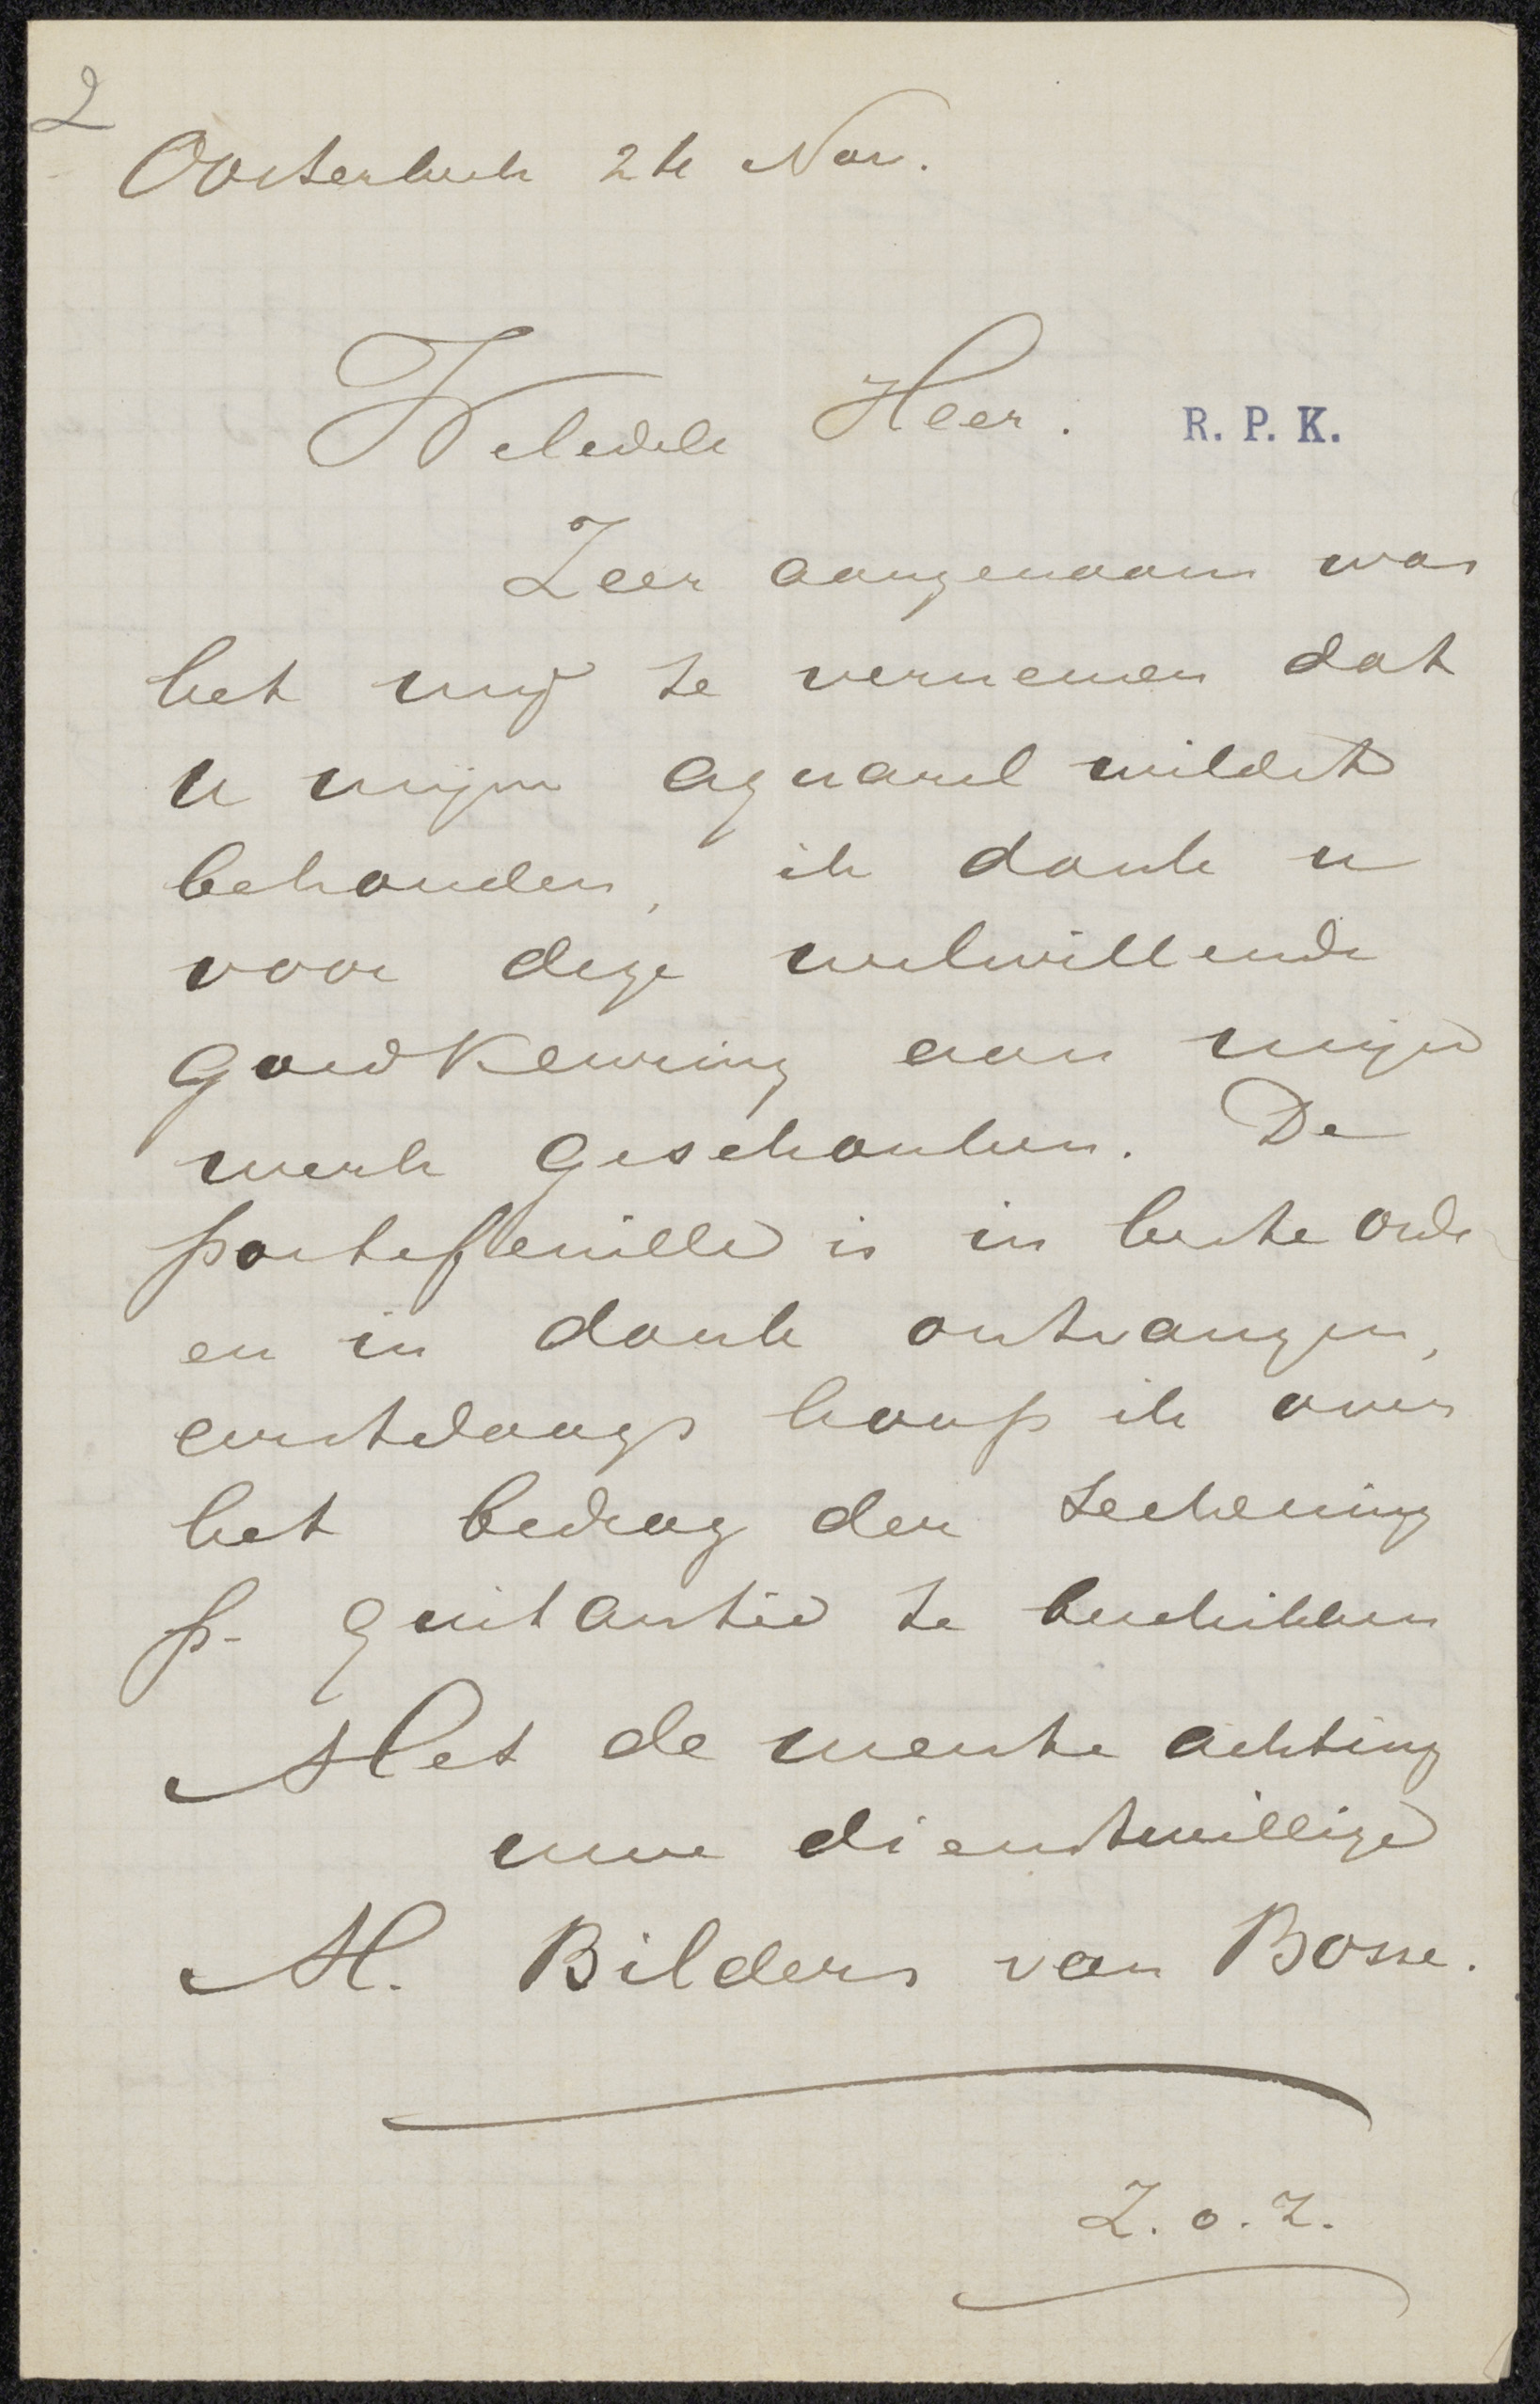 2
Oosterbeek 2de Nov.
Weledele Heer.
R. P. K.
Zeer aangenaam was
het mij te vernemen dat
u mijne aquarel wildet
behouden, ik dank u
voor deze welwillende
goedkeuring aan mijn
werk geschonken. De
portefeuille is in beste orde
en in dank ontvangen,
eerstdaags hoop ik over
het bedrag der teekening
p. quitantie te beschikken
Met de meeste achting
uwe dienstwillige
M. Bilders van Bosse.
Z.o.Z.